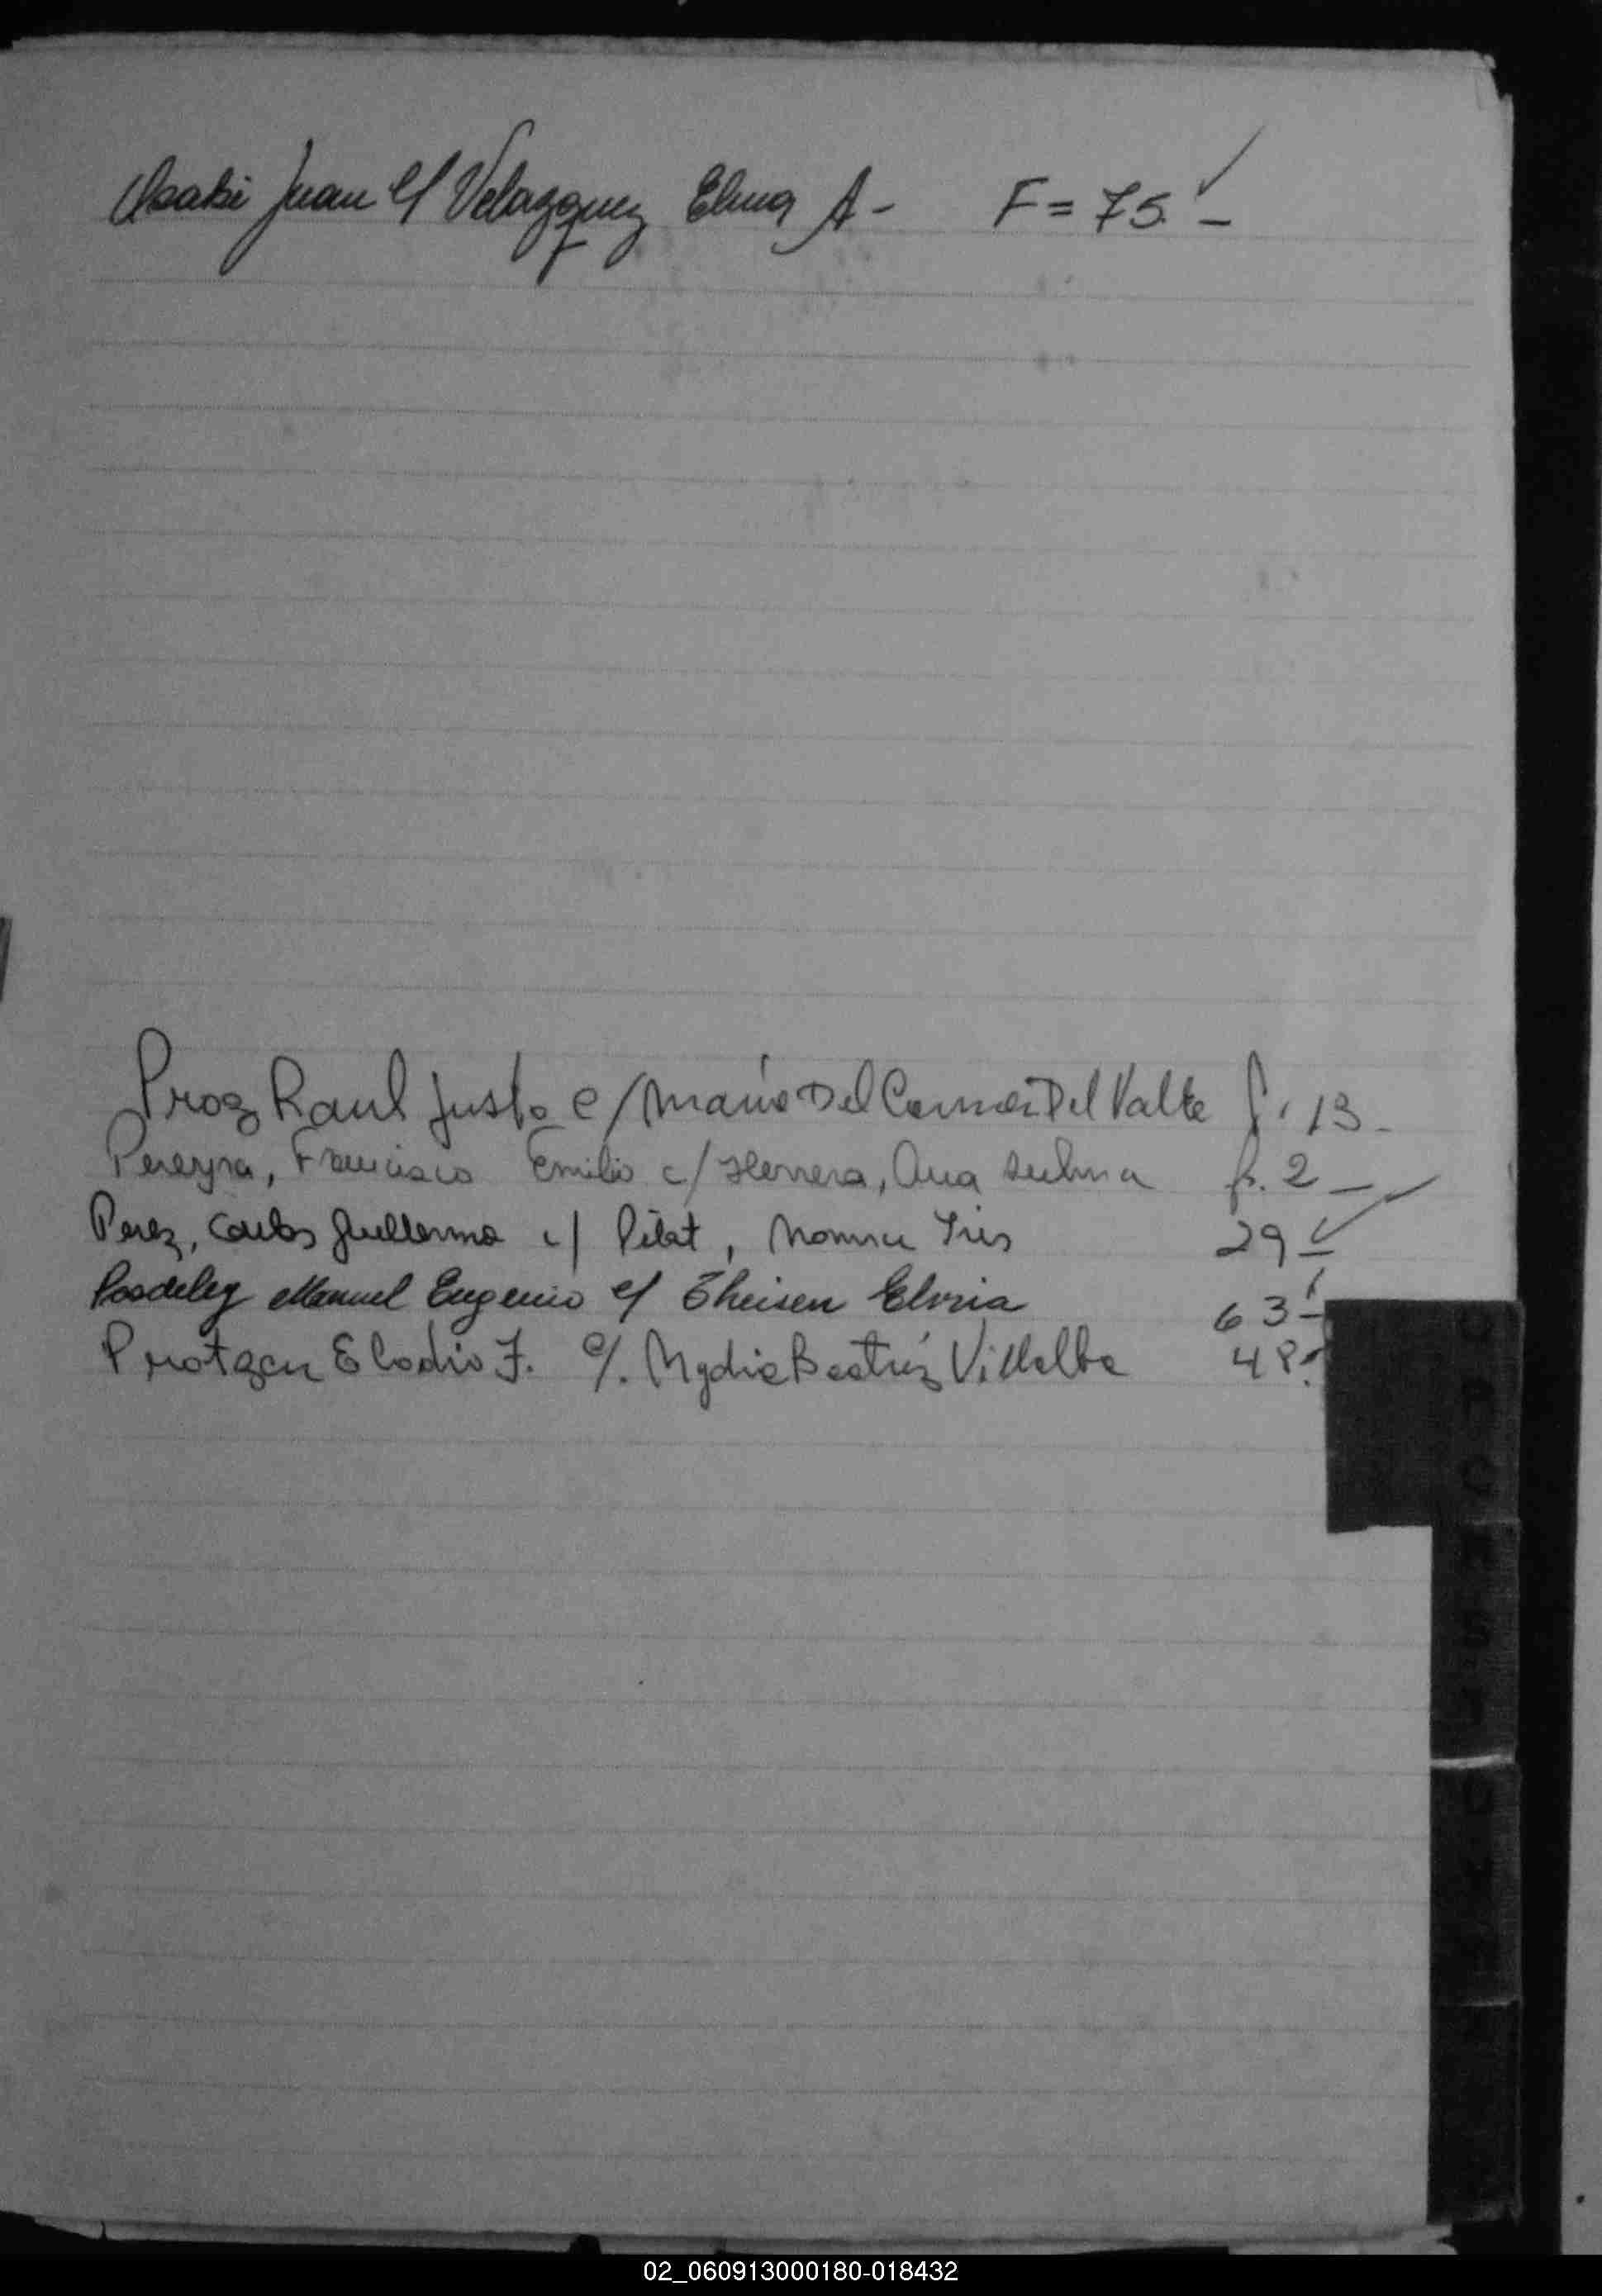 Osaki Juan c/ Velazquez Elma A - F = 75. -
Proz Raul Justo c/ Maria Del Carmen Del Valle f. 13 -
Pereyra, Francisco Emilio c/ Herrera, Ana Sulma f. 2 -
Perez, Carlos Guillermo c/ Pilat, Norma Iris 29 -
Manuel Eugenio c/ Theisen Elvira 63 -
Protzen Elodio F. c/. Nydia Beatriz Villalba 48.
02_060913000180-018432